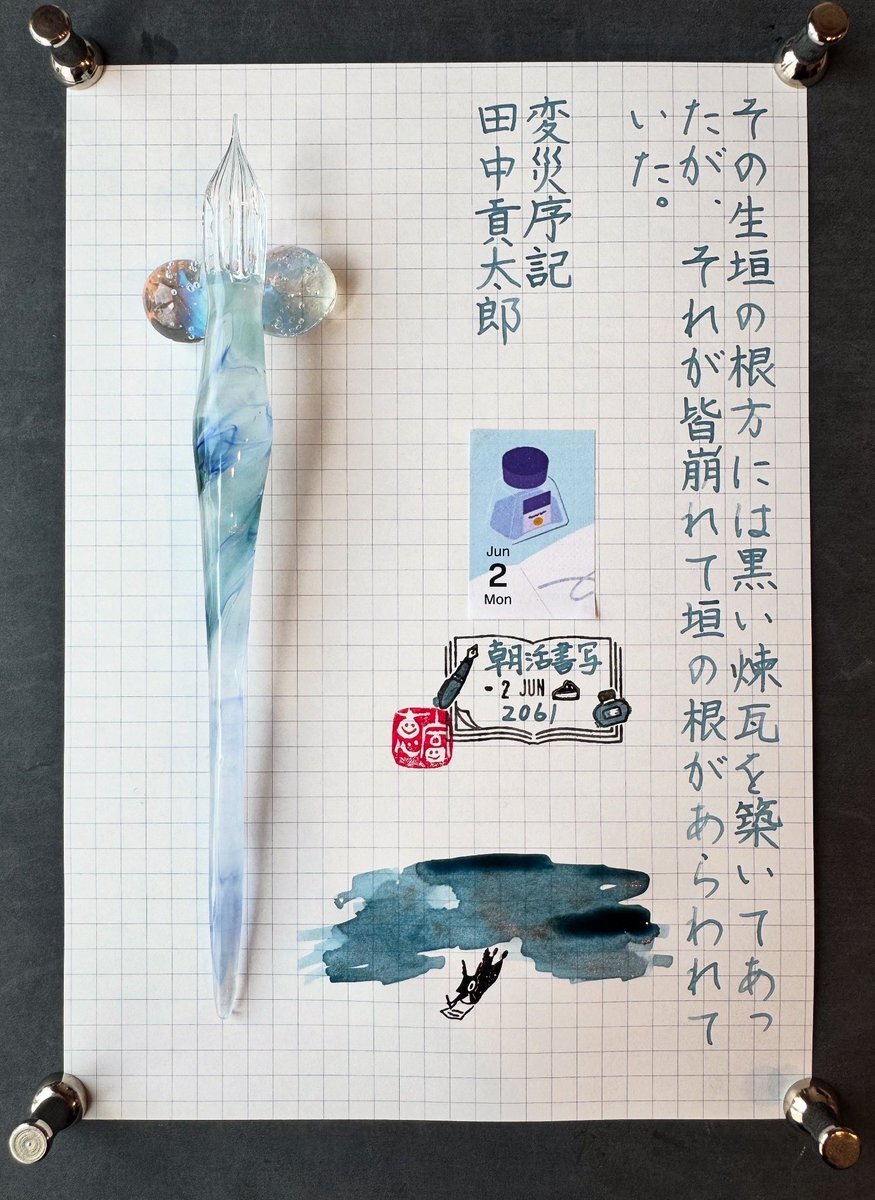 その生垣の根方には黒い煉瓦を築いてあっ
たが、それが皆崩れて垣の根があらわれて
いた。
変災序記
田中貢太郎
Jun
2
Mon
朝活書写
-2 JUN
2061